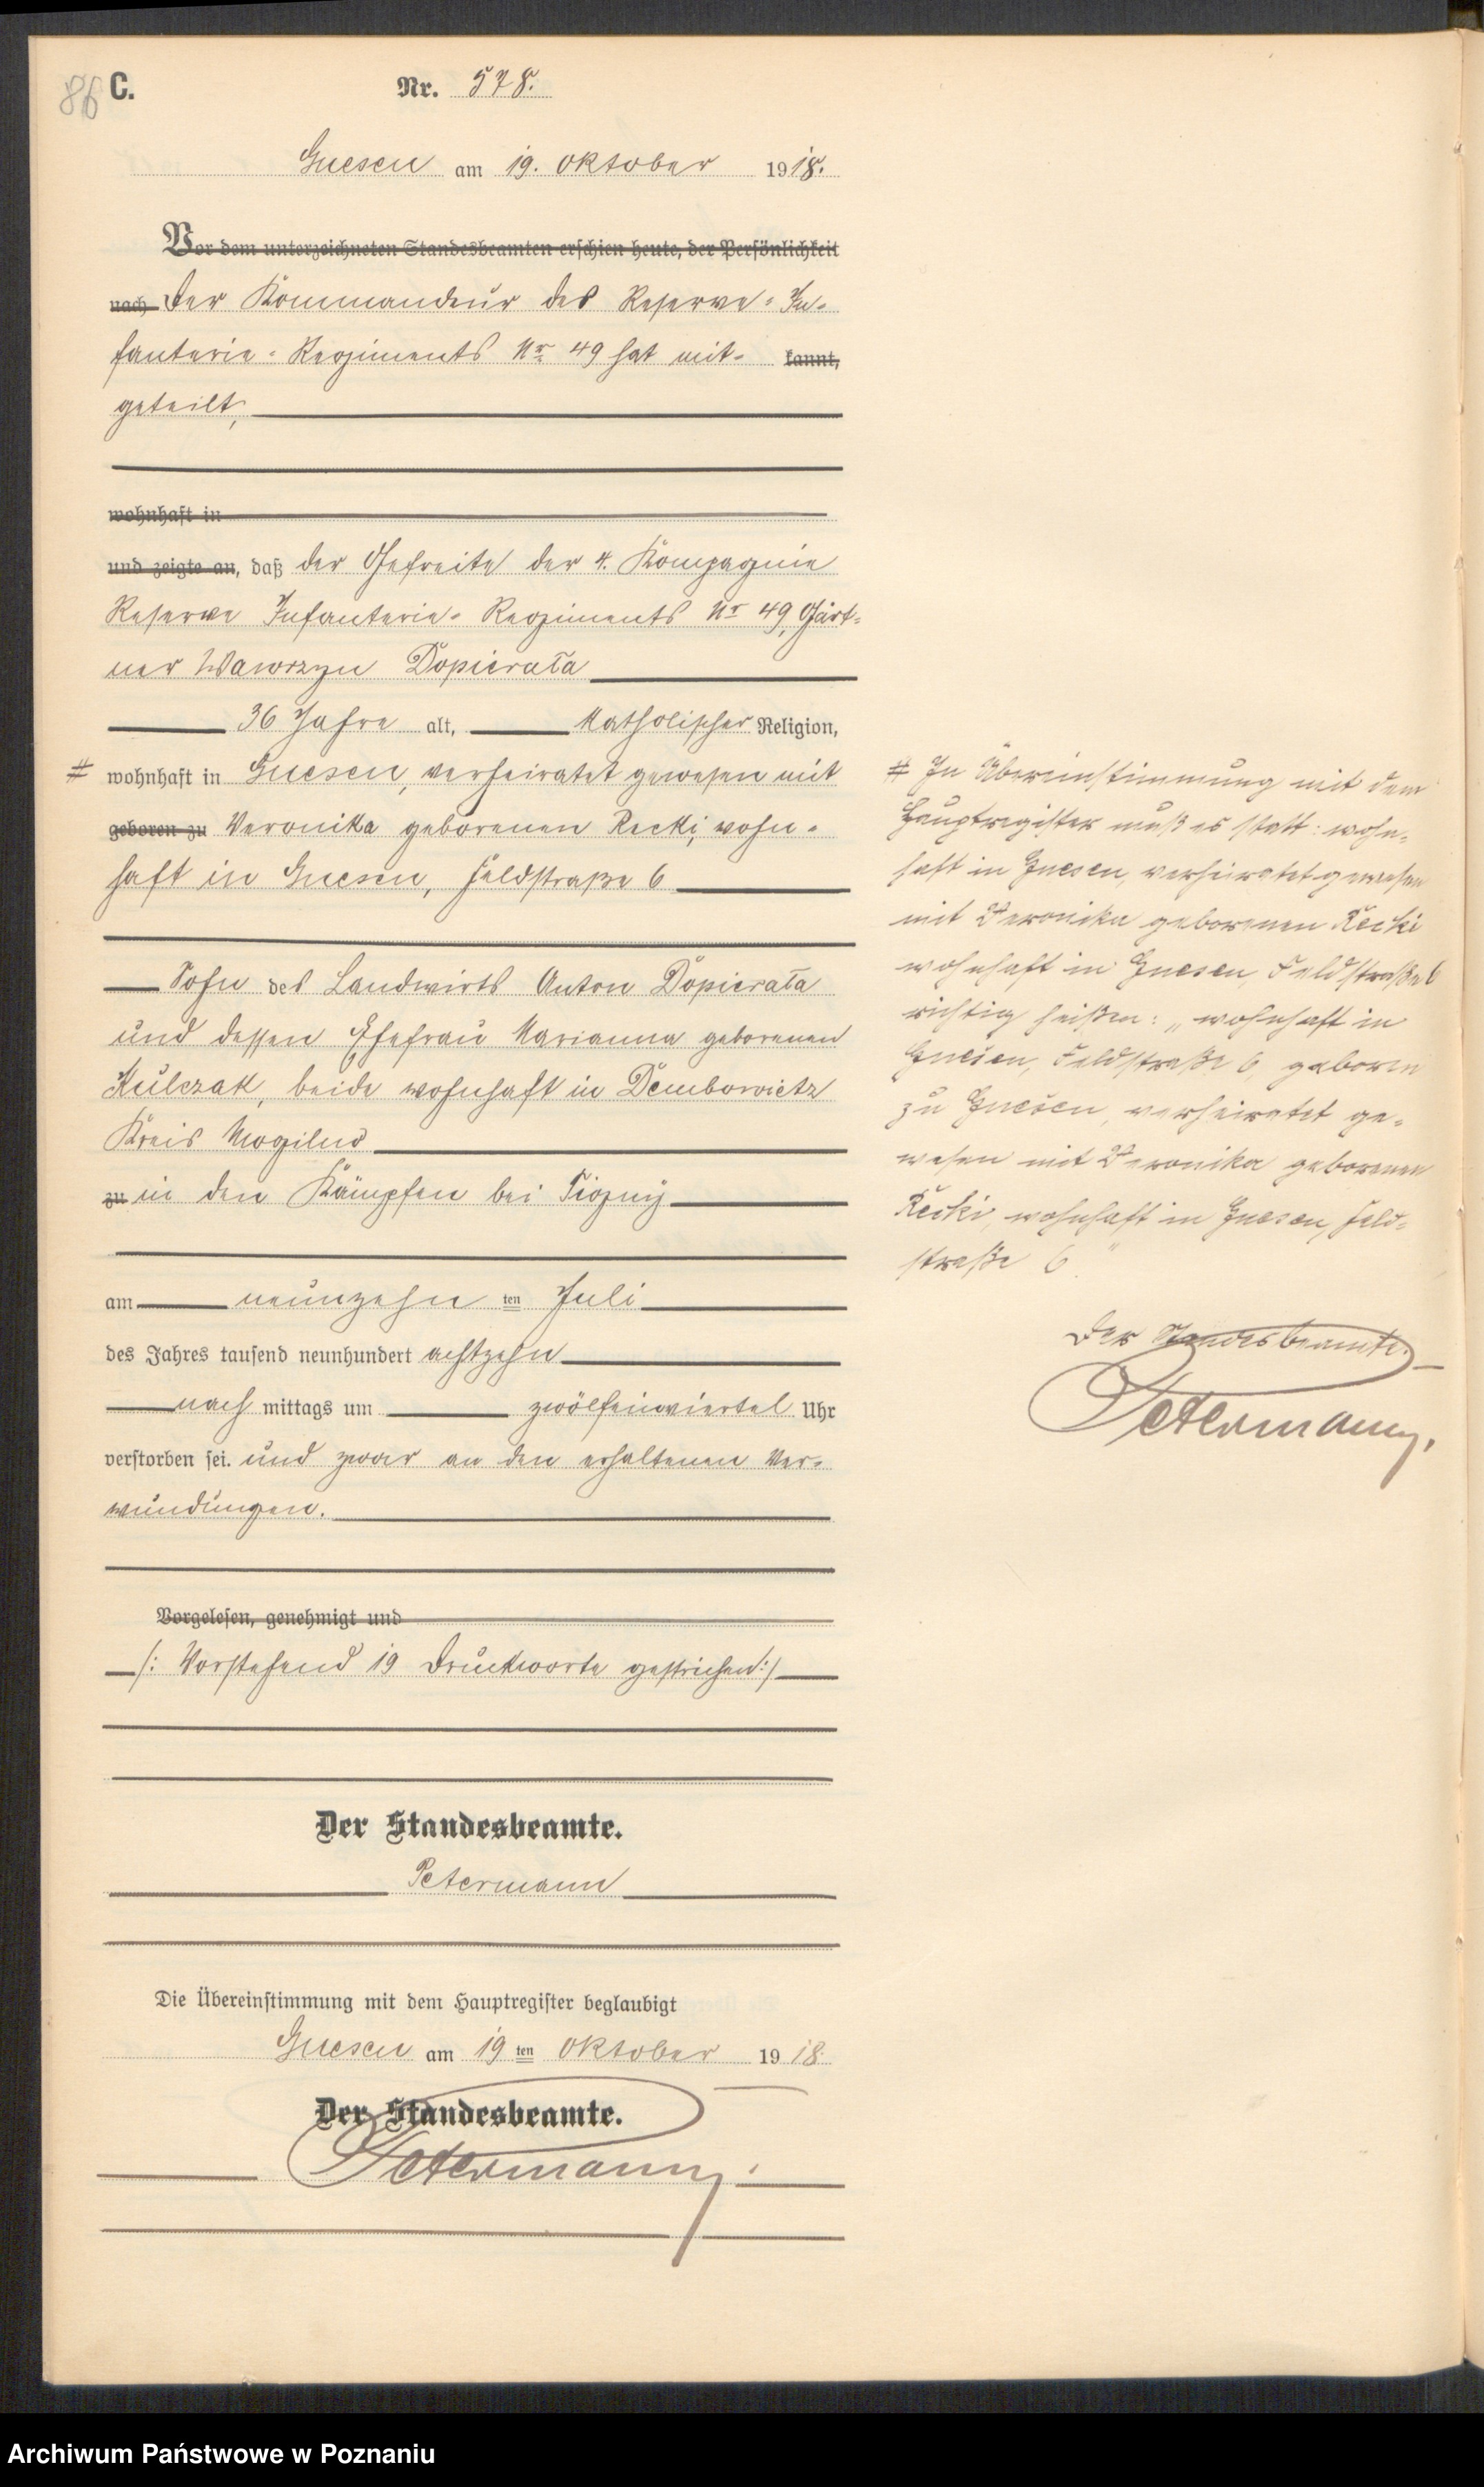 86 C. Nr. 578.
Gnesen am 19. Oktober 1918.
Vor dem unterzeichneten Standesbeamten erschien heute, der Persönlichkeit
nach Der Kommandeur des Reserve-In-
fanterie-Regiments Nr 49 hat mit- kannt,
geteilt,
wohnhaft in
und zeigte an, daß der Gefreite der 4. Kompagnie
Reserve Infanterie-Regiments Nr 49, Gärt-
ner Wawrzyn Dopierała
36 Jahre alt, katholischer Religion,
# wohnhaft in Gnesen, verheiratet gewesen mit
geboren zu Veronika geborenen Recki, wohn-
haft in Gnesen, Feldstraße 6
Sohn des Landwirts Anton Dopierała
und dessen Ehefrau Marianna geborenen
Kulczak, beide wohnhaft in Dembowietz
Kreis Mogilno
zu in den Kämpfen bei Tigny
am neunzehn ten Juli
des Jahres tausend neunhundert achtzehn
nach mittags um zwölfeinviertel Uhr
verstorben sei. und zwar an den erhaltenen Ver-
wundungen.
Vorgelesen, genehmigt und
/: Vorstehend 19 Druckworte gestrichen :/
Der Standesbeamte.
Petermann
Die Übereinstimmung mit dem Hauptregister beglaubigt
Gnesen am 19 ten Oktober 1918.
Der Standesbeamte.
Petermann.
# In Übereinstimmung mit dem
Hauptregister muß es statt: wohn-
haft in Gnesen, verheiratet gewesen
mit Veronika geborenen Recki
wohnhaft in Gnesen, Feldstraße 6
richtig heißen: „wohnhaft in
Gnesen, Feldstraße 6, geboren
zu Gnesen, verheiratet ge-
wesen mit Veronika geborenen
Recki, wohnhaft in Gnesen, Feld-
straße 6."
Der Standesbeamte.
Petermann.
Archiwum Państwowe w Poznaniu